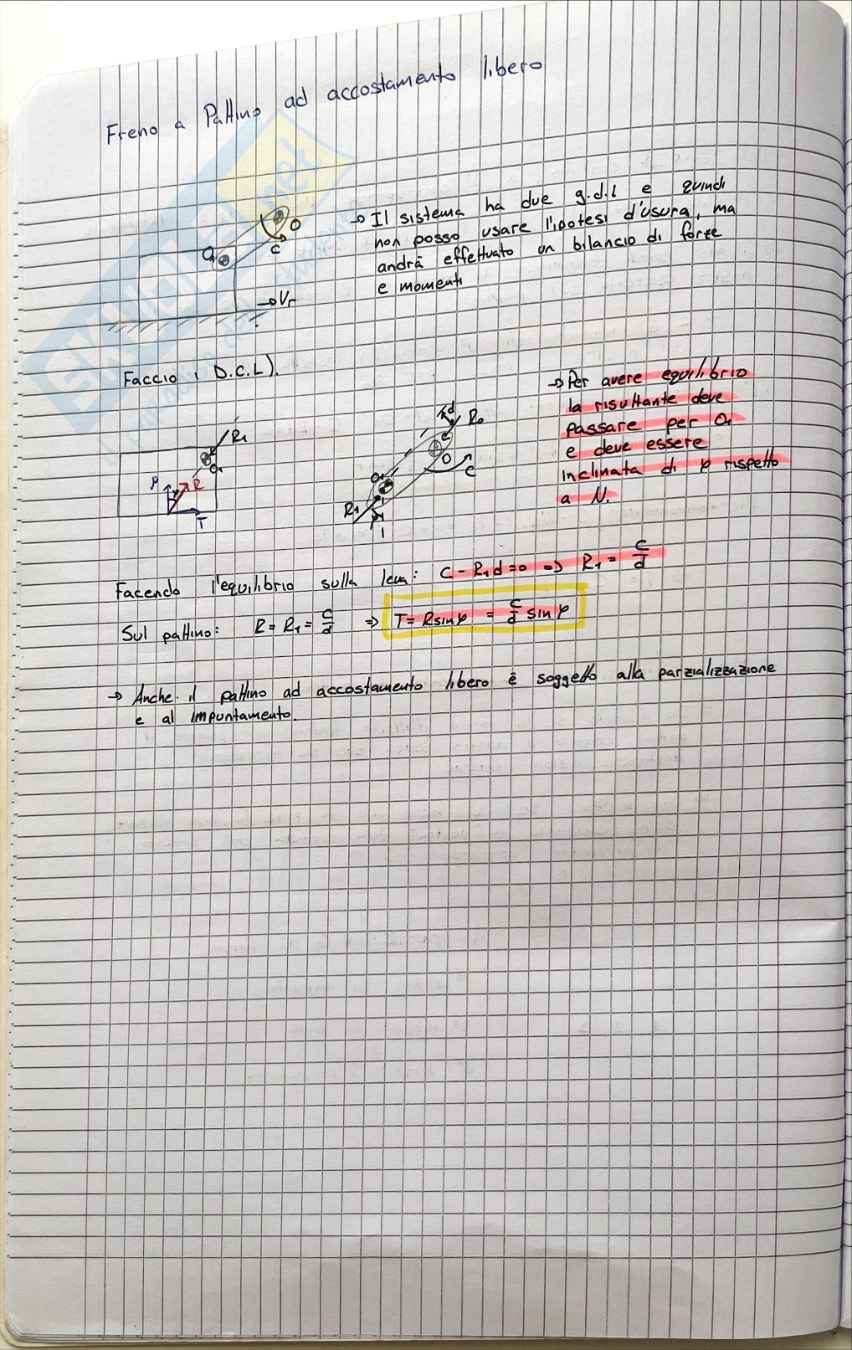 Freno a Pattino ad accostamento libero
→ Il sistema ha due g.d.l e quindi
non posso usare l'ipotesi d'usura, ma
andrà effettuato un bilancio di forze
e momenti
O
C
O₁
→ Vr
Faccio i D.C.L).
→ Per avere equilibrio
la risultante deve
passare per O₁
e deve essere
inclinata di φ rispetto
a N.
R₁
O₁
R
T
d
R₀
O
C
O₁
R₁
Facendo l'equilibrio sulla leva: C - R₁d = 0 => R₁ = C/d
Sul pattino: R = R₁ = C/d => T = R sinφ = C/d sinφ
→ Anche il pattino ad accostamento libero è soggetto alla parzializzazione
e al impuntamento.
SKUOLA.net